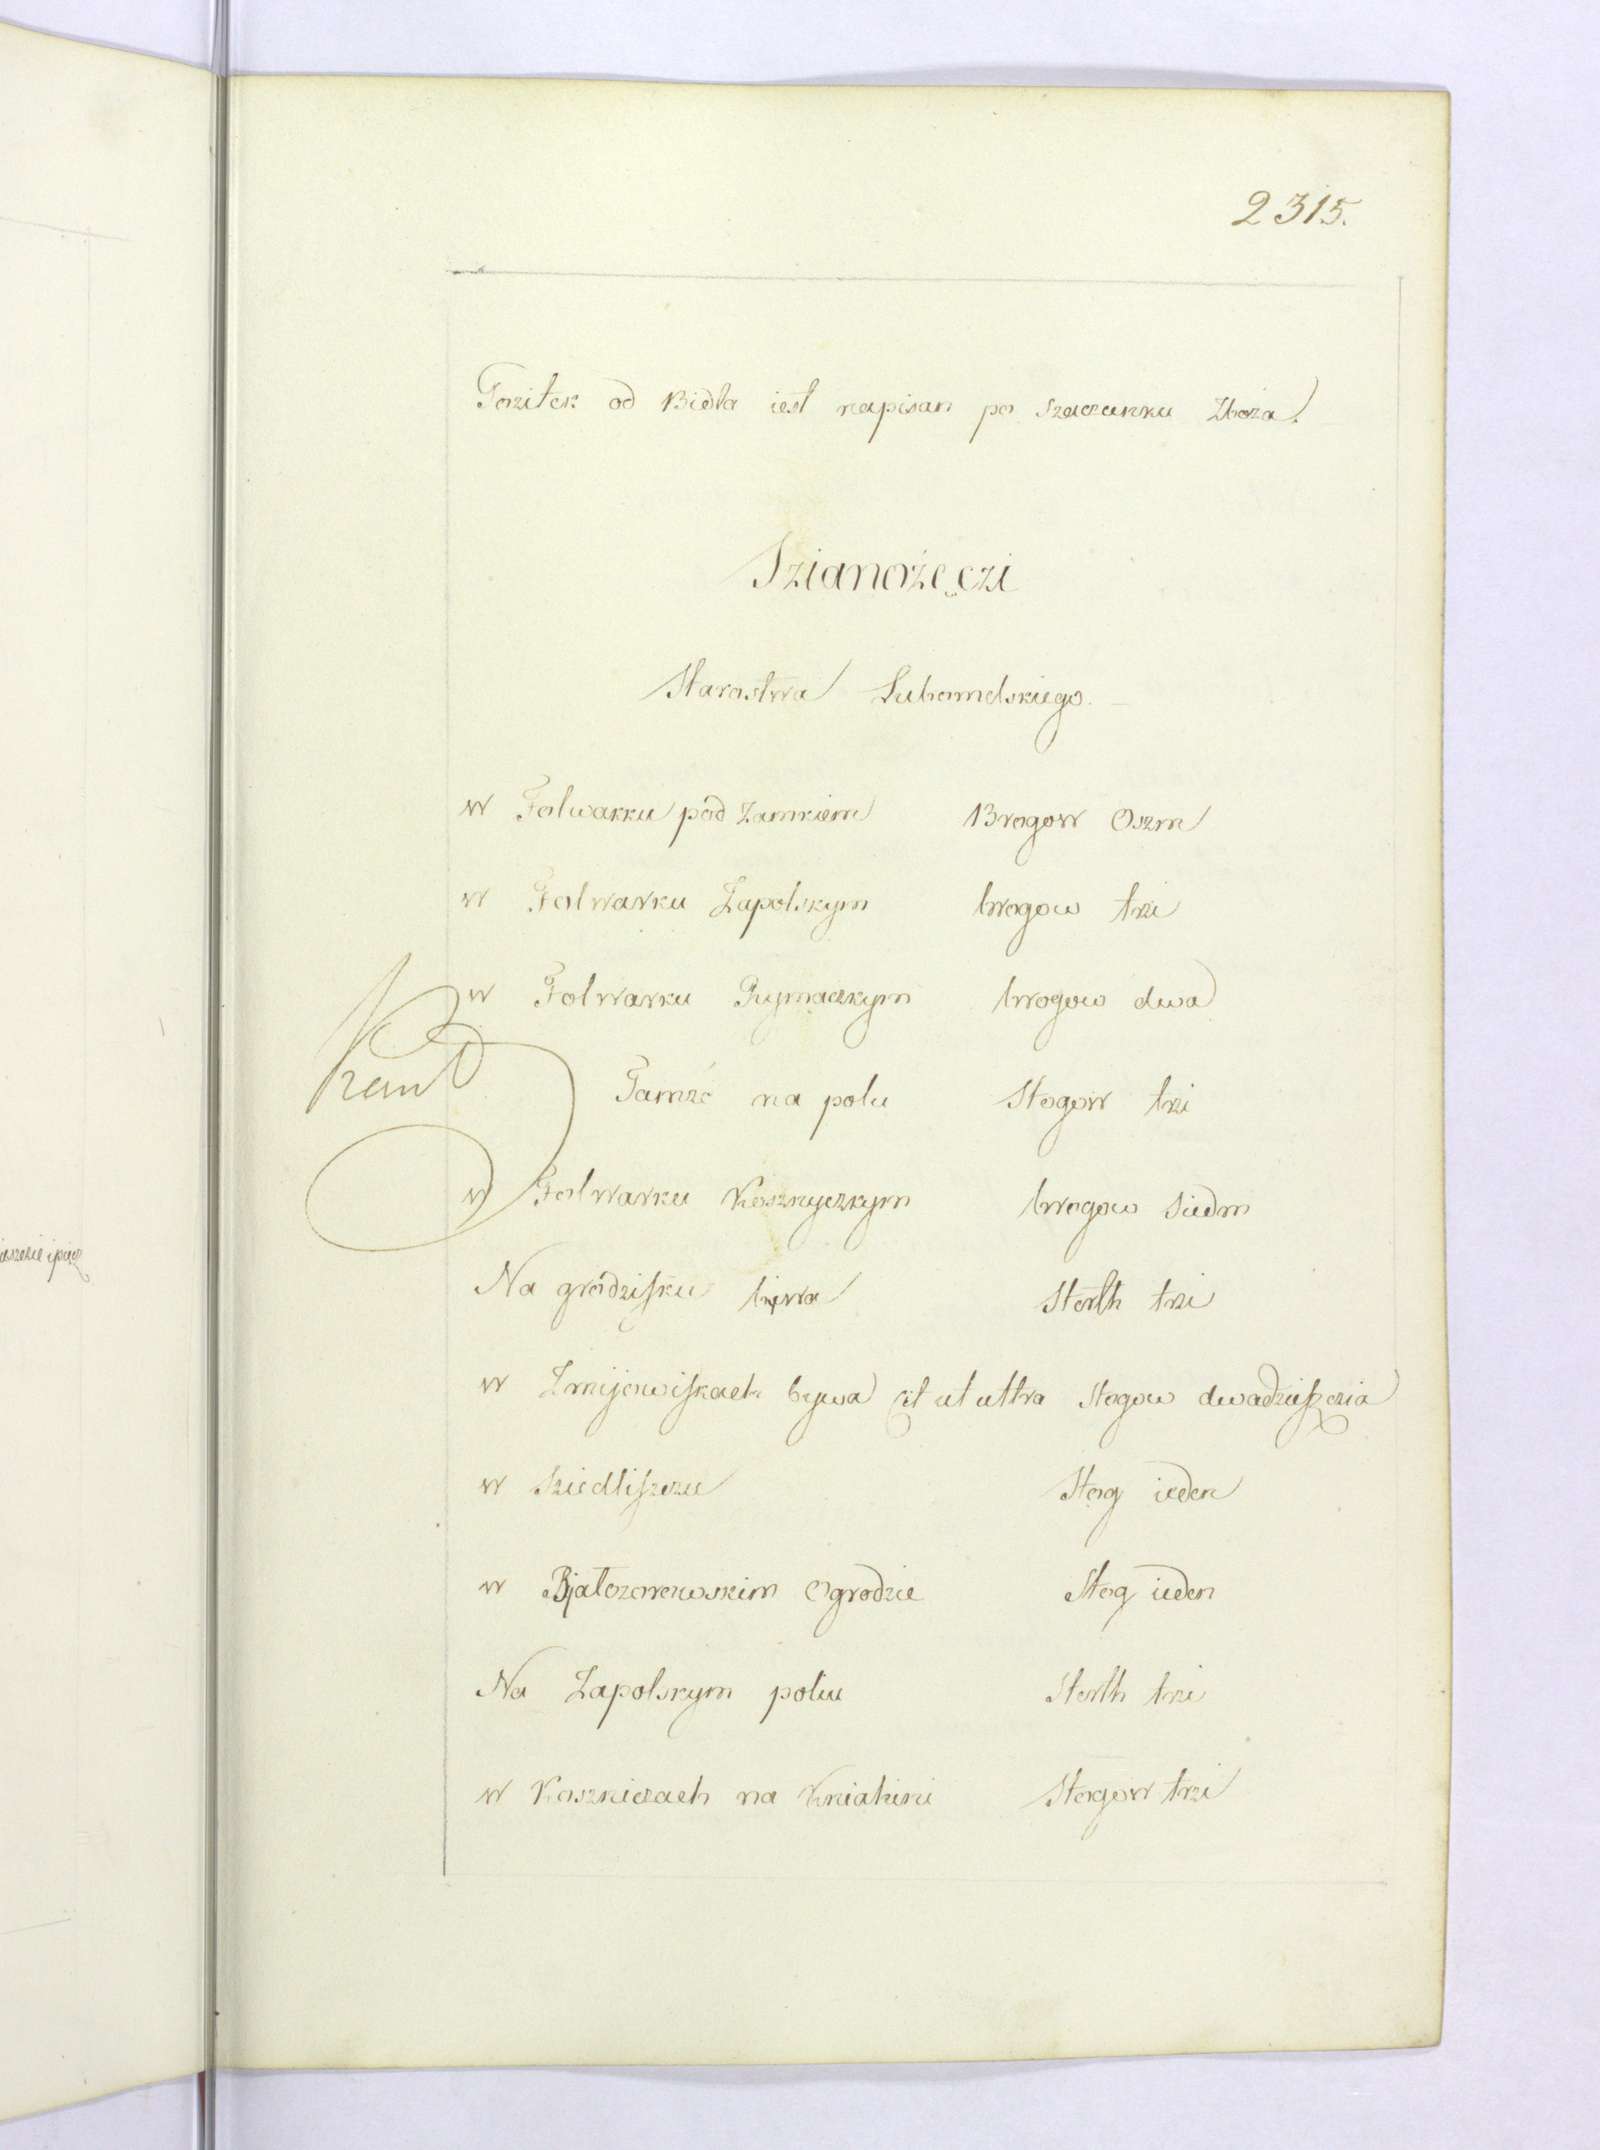 2315.
Pozitek od Bidła iest napisan po szaczunku Zboża.
Szianożęczi
Starostwa Lubomelskiego.
w Folwarku pod Zamkiem Brogow Oszm
w Folwarku Zapolskym brogow trzi
w Folwarku Rymaczkym brogow dwa
Tamże na polu Stogow trzi
w Folwarku Kosznyczkym brogow siedm
Na grodzisku bywa Sterth trzi
w Zmijowiskach bywa et ultra Stogow dwadzieszczia
w Sziedliszczu Stog ieden
w Białozorowskim Ogrodzie Stog ieden
Na Zapolskym poliu Sterth trzi
w Koszniczach na Kniahini Stogow trzi